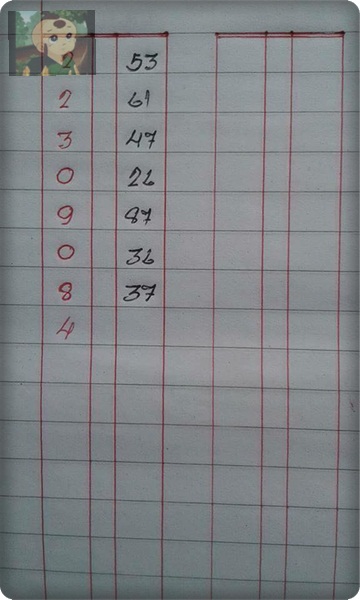 2 53
2 61
3 47
0 26
9 87
0 36
8 37
4